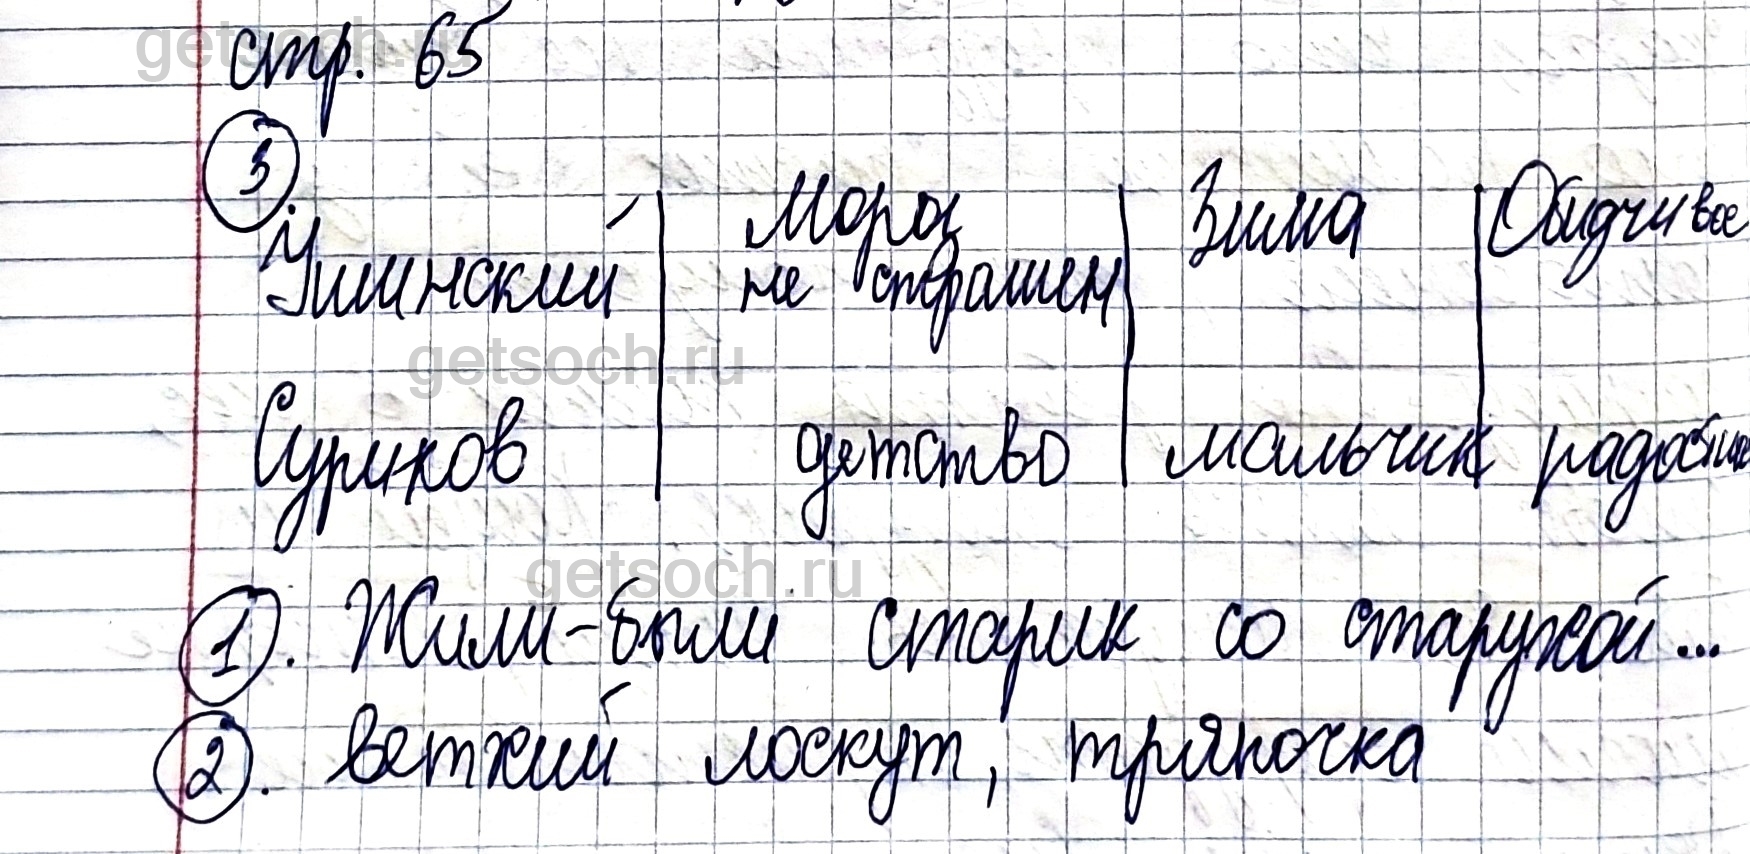 стр. 65
3
Ушинский | Мороз не страшен | Зима | Обидчивое
Суриков | детство | мальчик | радостное
1). Жили-были старик со старухой...
2). ветхий лоскут, тряпочка
getsoch.ru
getsoch.ru
getsoch.ru